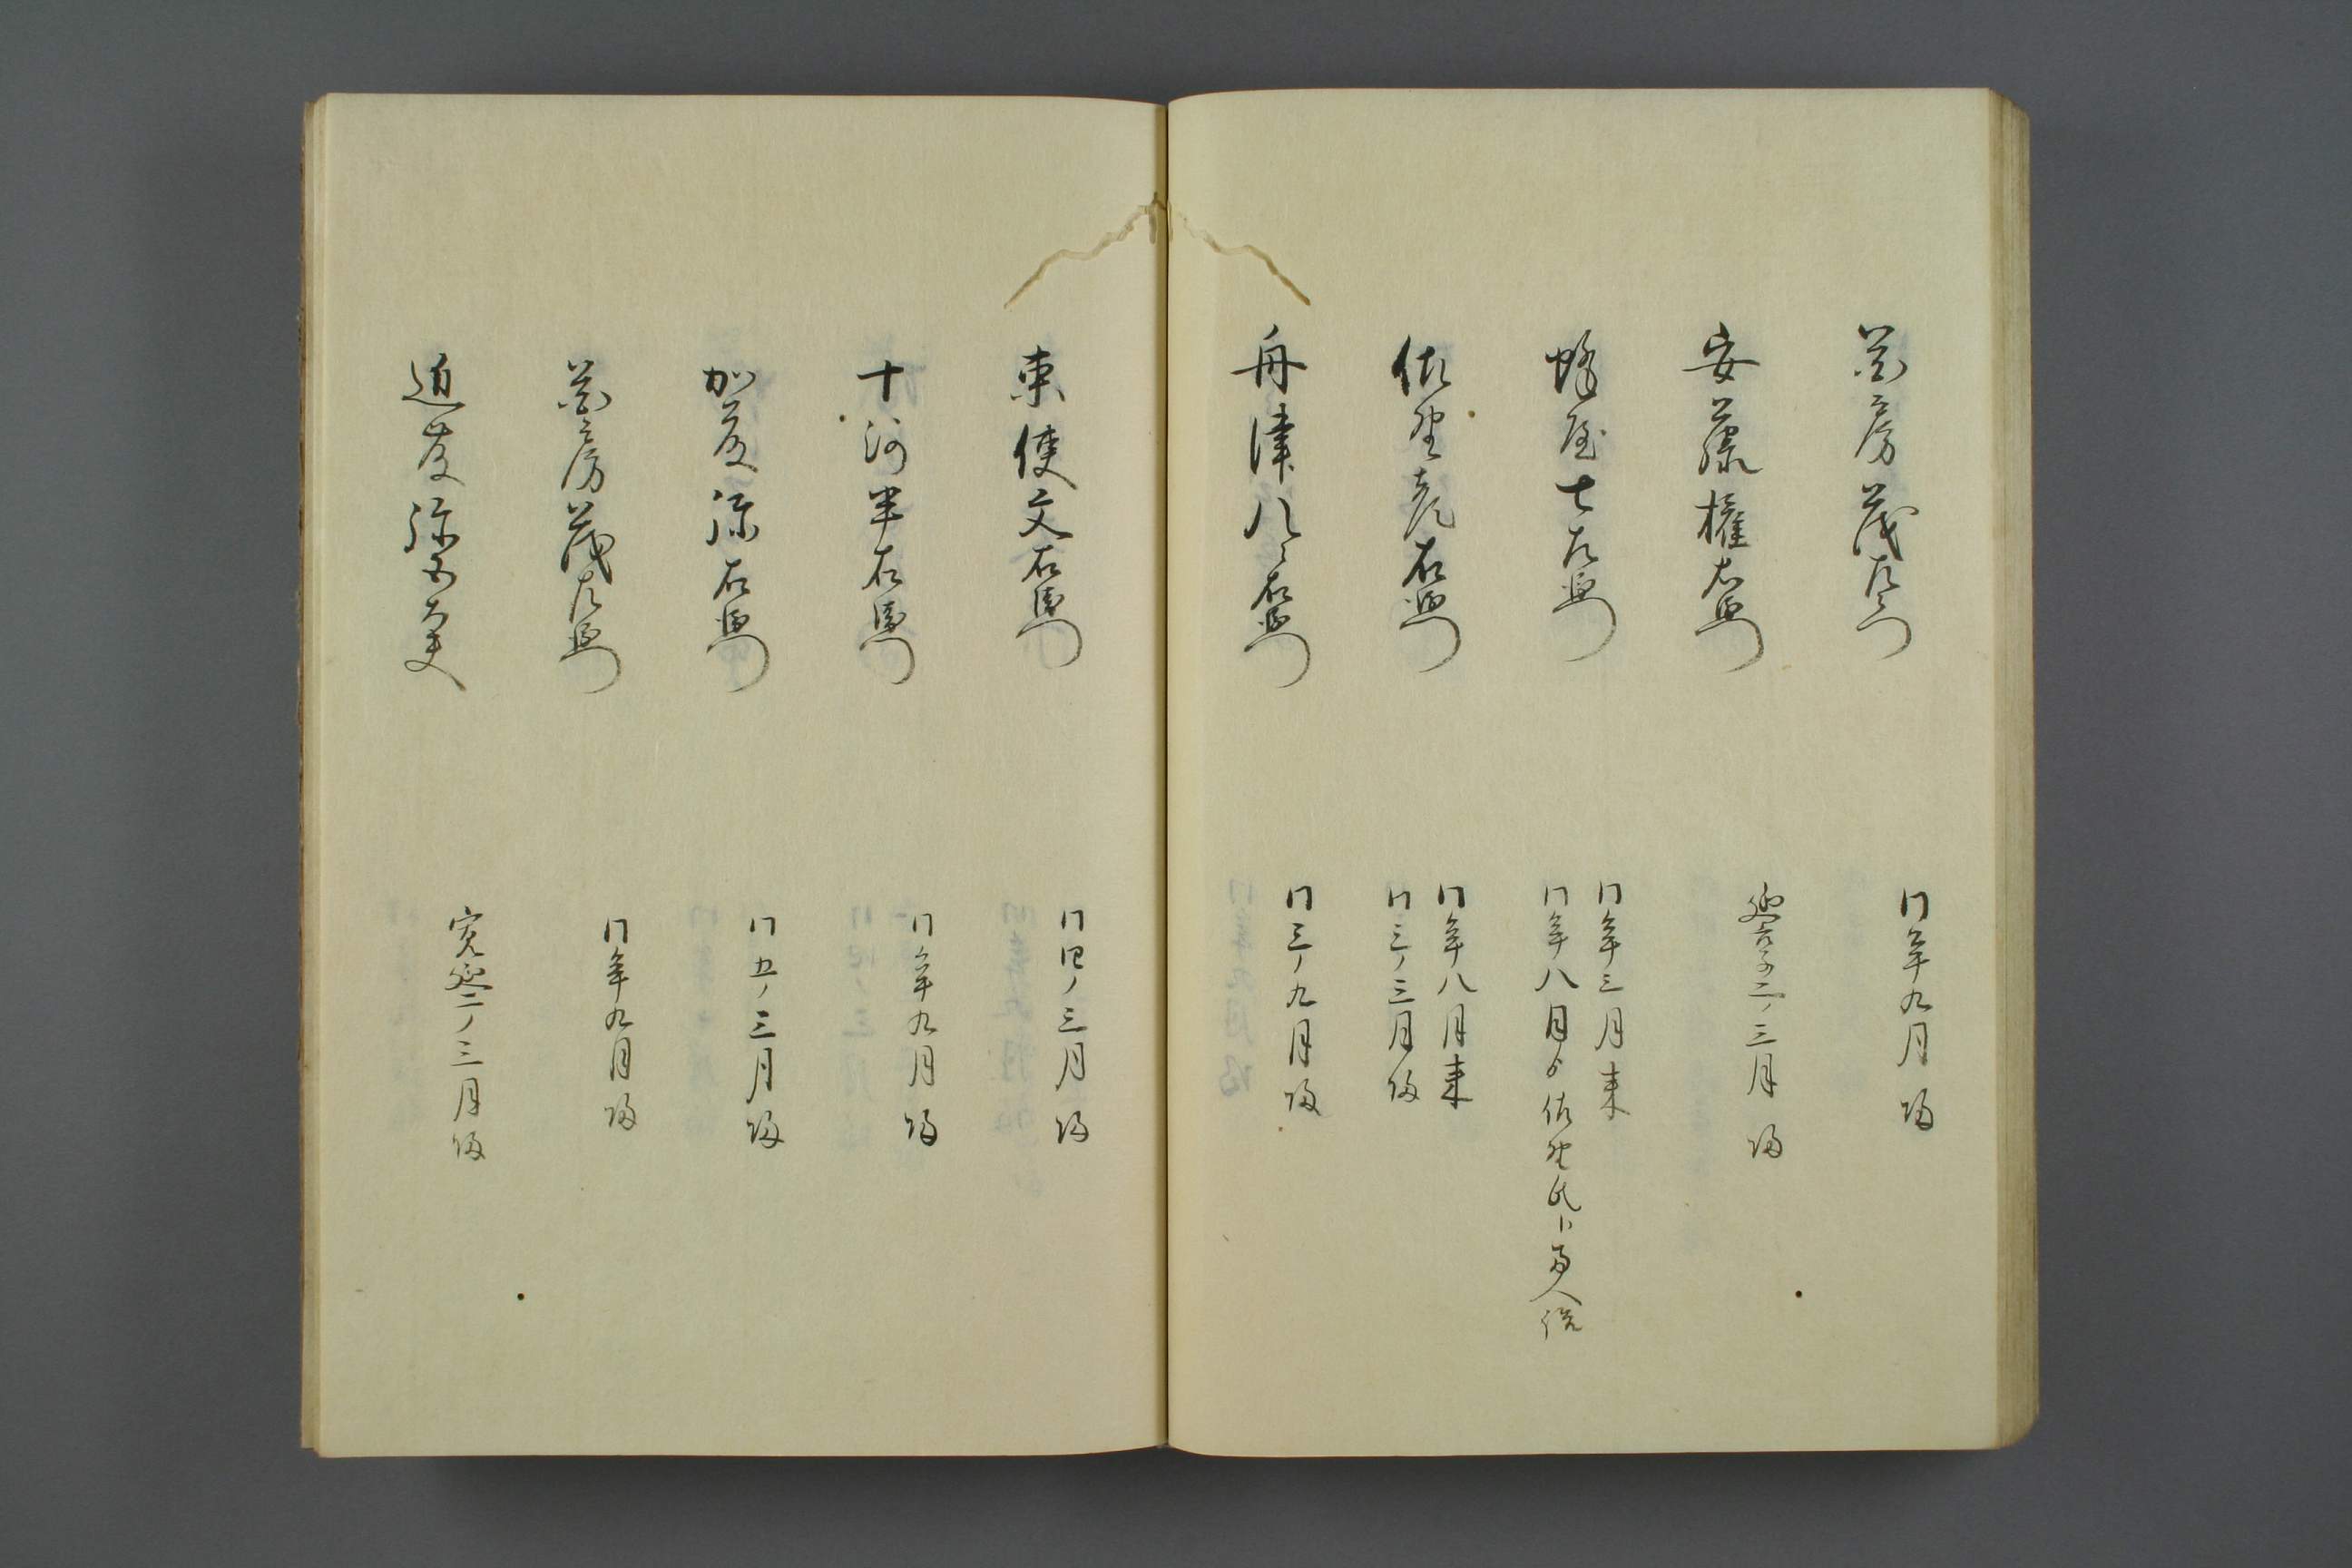 花房茂左衛門
同年九月帰
安藤權右衛門
延享二ノ三月帰
蜂屋七左衛門
同年三月来
同年八月ゟ佐野氏ト両人
佐野彦右衛門
同年八月来
同三ノ三月帰
舟津八右衛門
同三ノ九月帰
東使文右衛門
同四ノ三月帰
十河半右衛門
同年九月帰
加茂弥右衛門
同五ノ三月帰
花房茂左衛門
同年九月帰
近藤弥五大夫
寛延二ノ三月帰